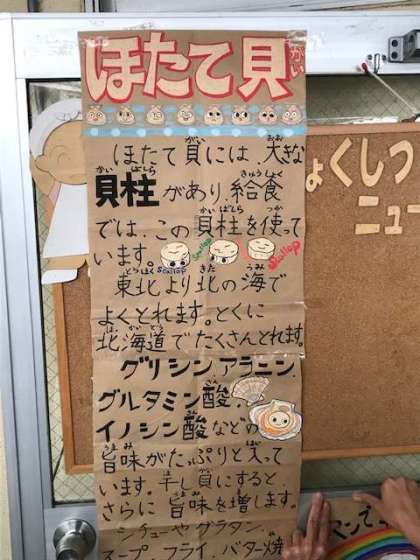 ほたて貝
ほたて貝には、大きな
貝柱があり、給食
では、この貝柱を使って
います。
Scallop
Scallop
Scallop
東北より北の海で
よくとれます。とくに
北海道でたくさんとれます。
グリシン、アラニン、
グルタミン酸、
イノシン酸などの
旨味がたっぷりと入って
います。干し貝にすると、
さらに旨味を増します。
シチューやグラタン、
スープ、フライ、バター焼
ょくしつ
ニュー
マンで